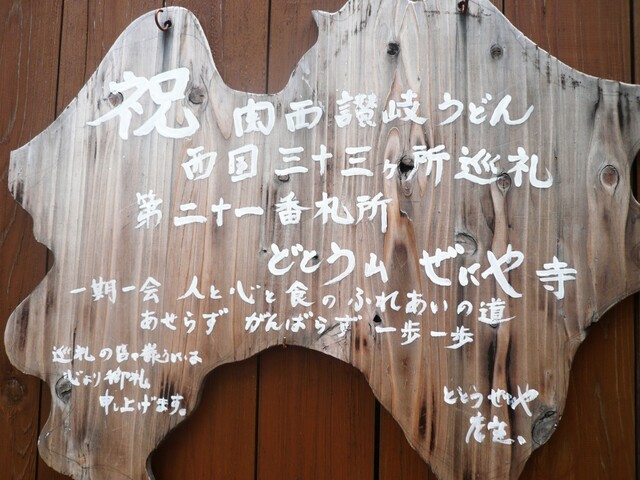 祝 関西讃岐うどん
西国三十三ヶ所巡礼
第二十一番札所
どとう山 ぜにや寺
一期一会 人と心と食のふれあいの道
あせらず がんばらず 一歩一歩
巡礼の皆々様
心より御礼
申し上げます。
どとうぜにや
店主